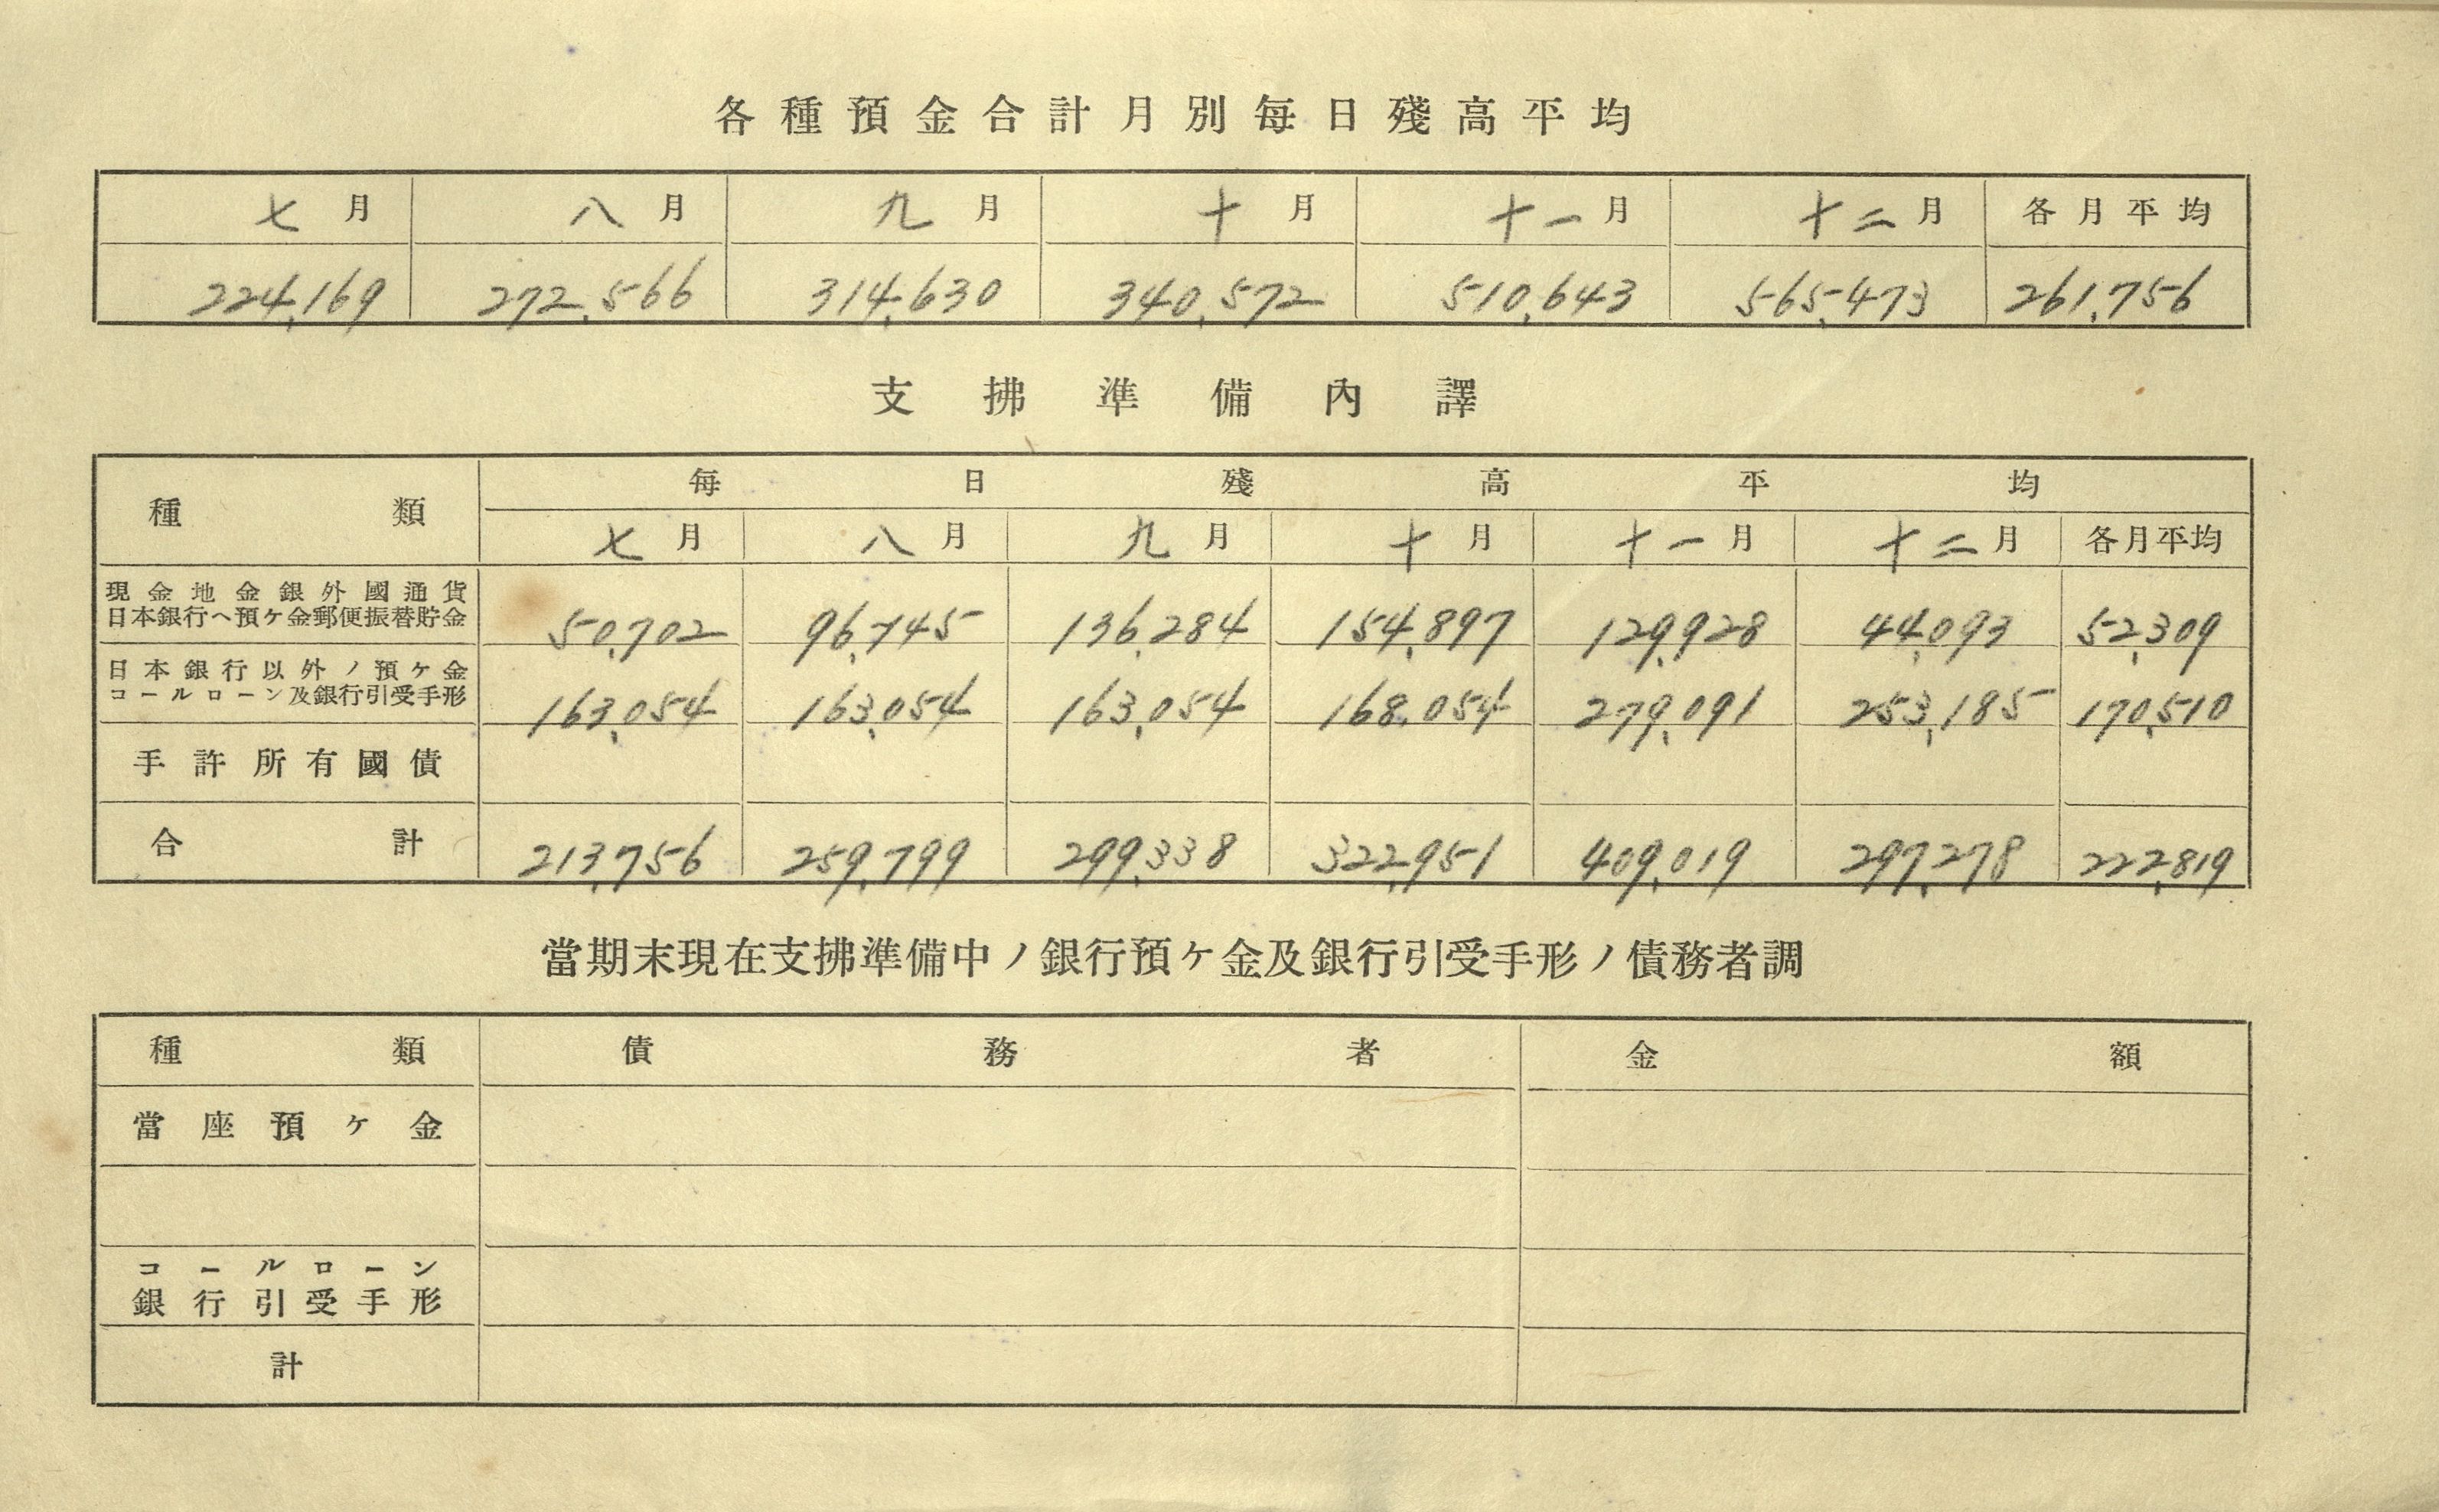 各種預金合計月別每日殘高平均
七月 八月 九月 十月 十一月 十二月 各月平均
224,169 272,566 314,630 340,572 510,643 565,473 261,756
支拂準備內譯
種類 每日殘高平均
七月 八月 九月 十月 十一月 十二月 各月平均
現金地金銀外國通貨
日本銀行ヘ預ケ金郵便振替貯金 50,702 96,745 136,284 154,897 129,928 44,093 52,309
日本銀行以外ノ預ケ金
コールローン及銀行引受手形 163,054 163,054 163,054 168,054 279,091 253,185 170,510
手許所有國債
合計 213,756 259,799 299,338 322,951 409,019 297,278 222,819
當期末現在支拂準備中ノ銀行預ケ金及銀行引受手形ノ債務者調
種類 債務者 金額
當座預ケ金
コールローン
銀行引受手形
計